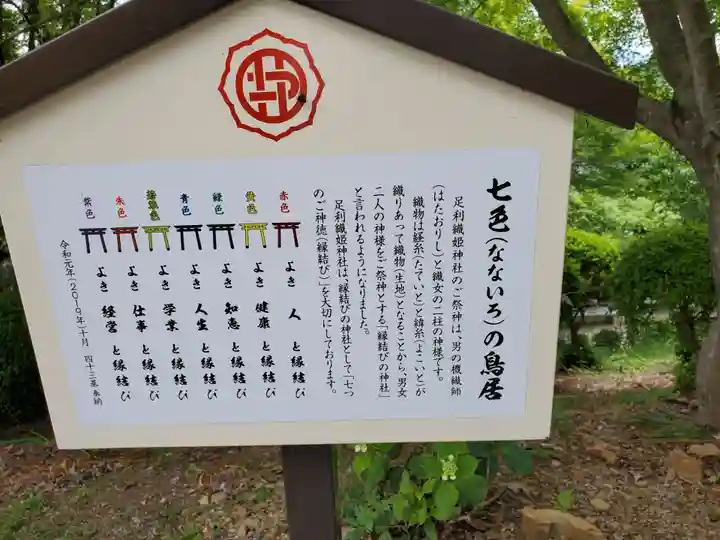 七色(なないろ)の鳥居
足利織姫神社のご祭神は、男の機織師
(はたおりし)と織女の二柱の神様です。
織物は経糸(たていと)と緯糸(よこいと)が
織りあって織物(生地)となることから、男女
二人の神様をご祭神とする「縁結びの神社」
と言われるようになりました。
足利織姫神社は「縁結びの神社として「七つ
のご神徳(縁結び)」を大切にしております。
赤色 よき 人 と縁結び
黄色 よき 健康 と縁結び
緑色 よき 知恵 と縁結び
青色 よき 人生 と縁結び
若草色 よき 学業 と縁結び
朱色 よき 仕事 と縁結び
紫色 よき 経営 と縁結び
令和元年(2019年)十月 四十三基奉納